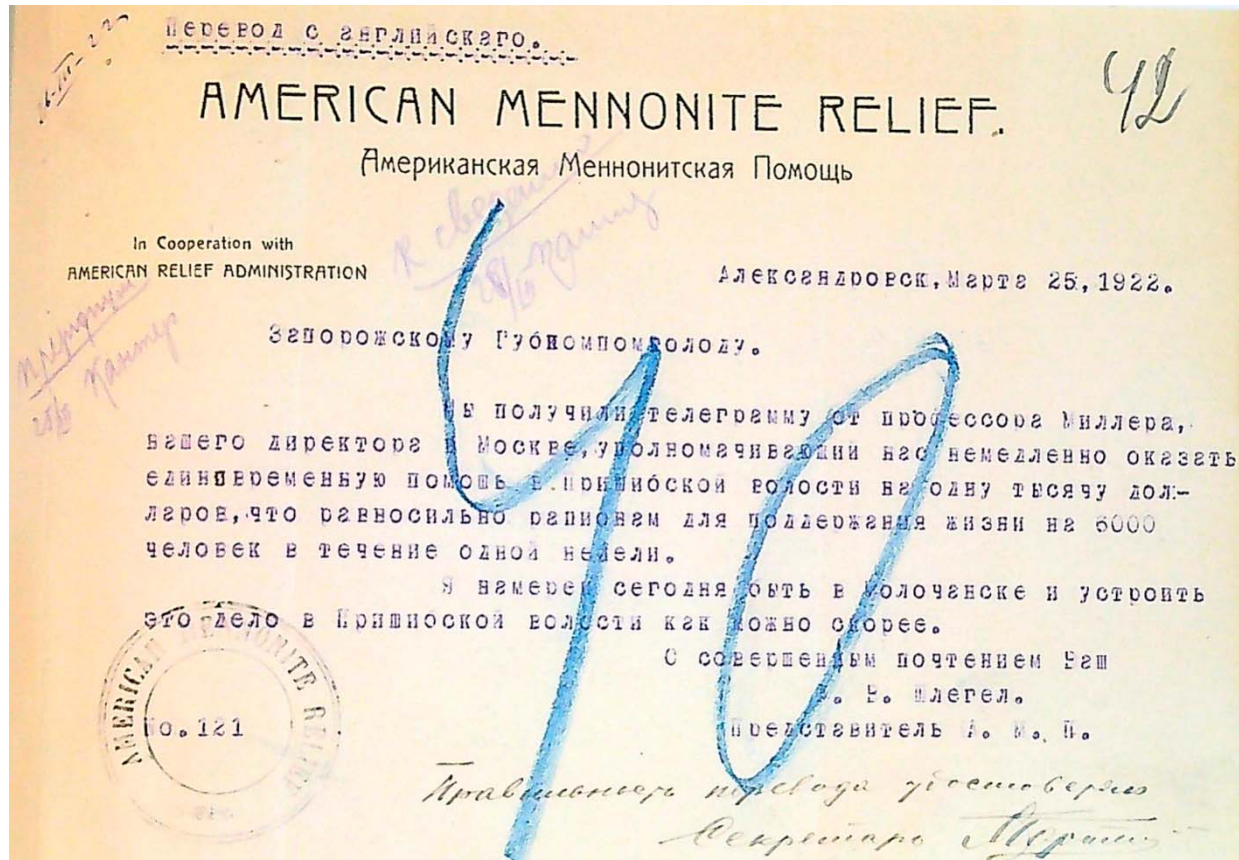 Перевод с английскаго.
42
AMERICAN MENNONITE RELIEF.
Американская Меннонитская Помощь
К сведению
In Cooperation with
AMERICAN RELIEF ADMINISTRATION
Александровск, Марта 25, 1922.
Запорожскому Губкомпомголоду.
Кантер
Мы получили телеграмму от профессора Миллера,
нашего директора в Москве, уполномачивающий нас немедленно оказать
единовременную помощь в Пришибской волости на одну тысячу дол-
ларов, что равносильно рационам для поддержания жизни на 6000
человек в течение одной недели.
Я намерен сегодня быть в Молочанске и устроить
это дело в Пришибской волости как можно скорее.
С совершенным почтением Ваш
В. Шлегел.
No. 121
Представитель А. М. П.
AMERICAN MENNONITE RELIEF
90
Правильность перевода удостоверяю
Секретарь